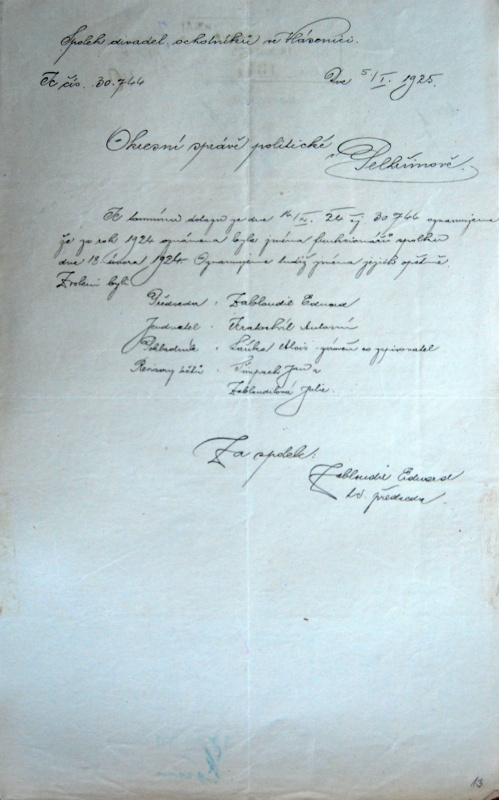 Spolek divadel. ochotníků ve Vlásenici.
K čís. 30.744 Dne 5/I. 1925.
Okresní správě politické
v Pelhřimově.
dne 24 čj 30.744 oznamujeme
že za rok 1924 oznámena byla změna funkcionářů spolku
dne 13 února 1924. Oznamujeme tudíž změnu jejich opětně
Zvoleni byli
Předseda. Zabloudil Eduard
Jednatel. Kratochvíl Antonín
Pokladník. Alois zároveň co zapisovatel
Revisory účtů. Šimpach Jan a
Zabloudilová Julie.
Za spolek:
Zabloudil Eduard
t.č. předseda.
13